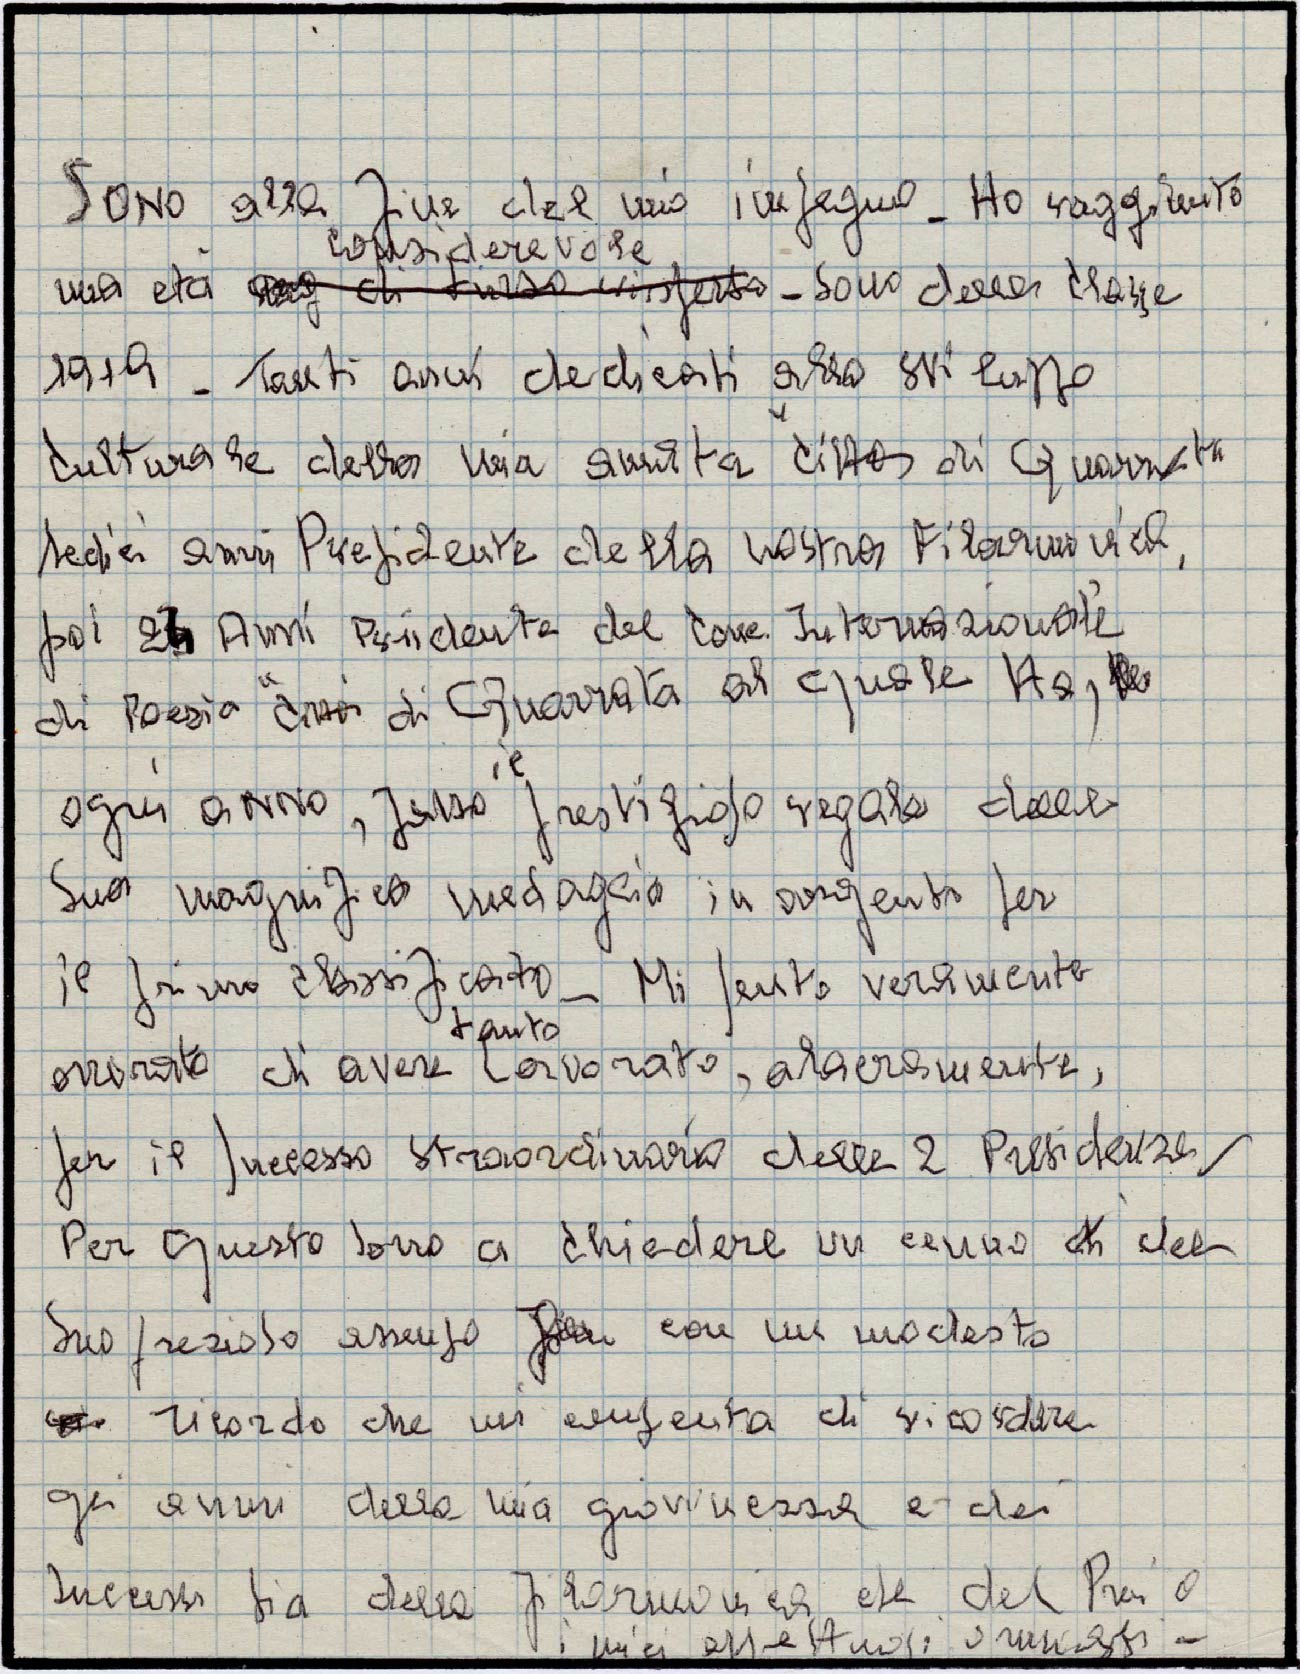 Sono alla fine del mio impegno - Ho raggiunto
considerevole
una età di - Sono della classe
1919 - Tanti anni dedicati allo sviluppo
culturale della mia amata "città di Quarrata
Sedici anni Presidente della nostra Filarmonica,
poi Anni Presidente del Conc. Internazionale
di Poesia "Città di Quarrata al quale Ha,
il
ogni anno, prestigioso regalo della
Sua magnifica medaglia in argento per
il primo classificato - Mi sento veramente
tanto
onorato di avere lavorato, alacremente,
per il successo straordinario delle 2 Presidenze
Per questo sono a chiedere un cenno di del
Suo prezioso assenso con un modesto
ricordo che mi consenta di ricordare
gli anni della mia giovinezza e dei
successi sia della filarmonica che del
i miei affettuosi omaggi -